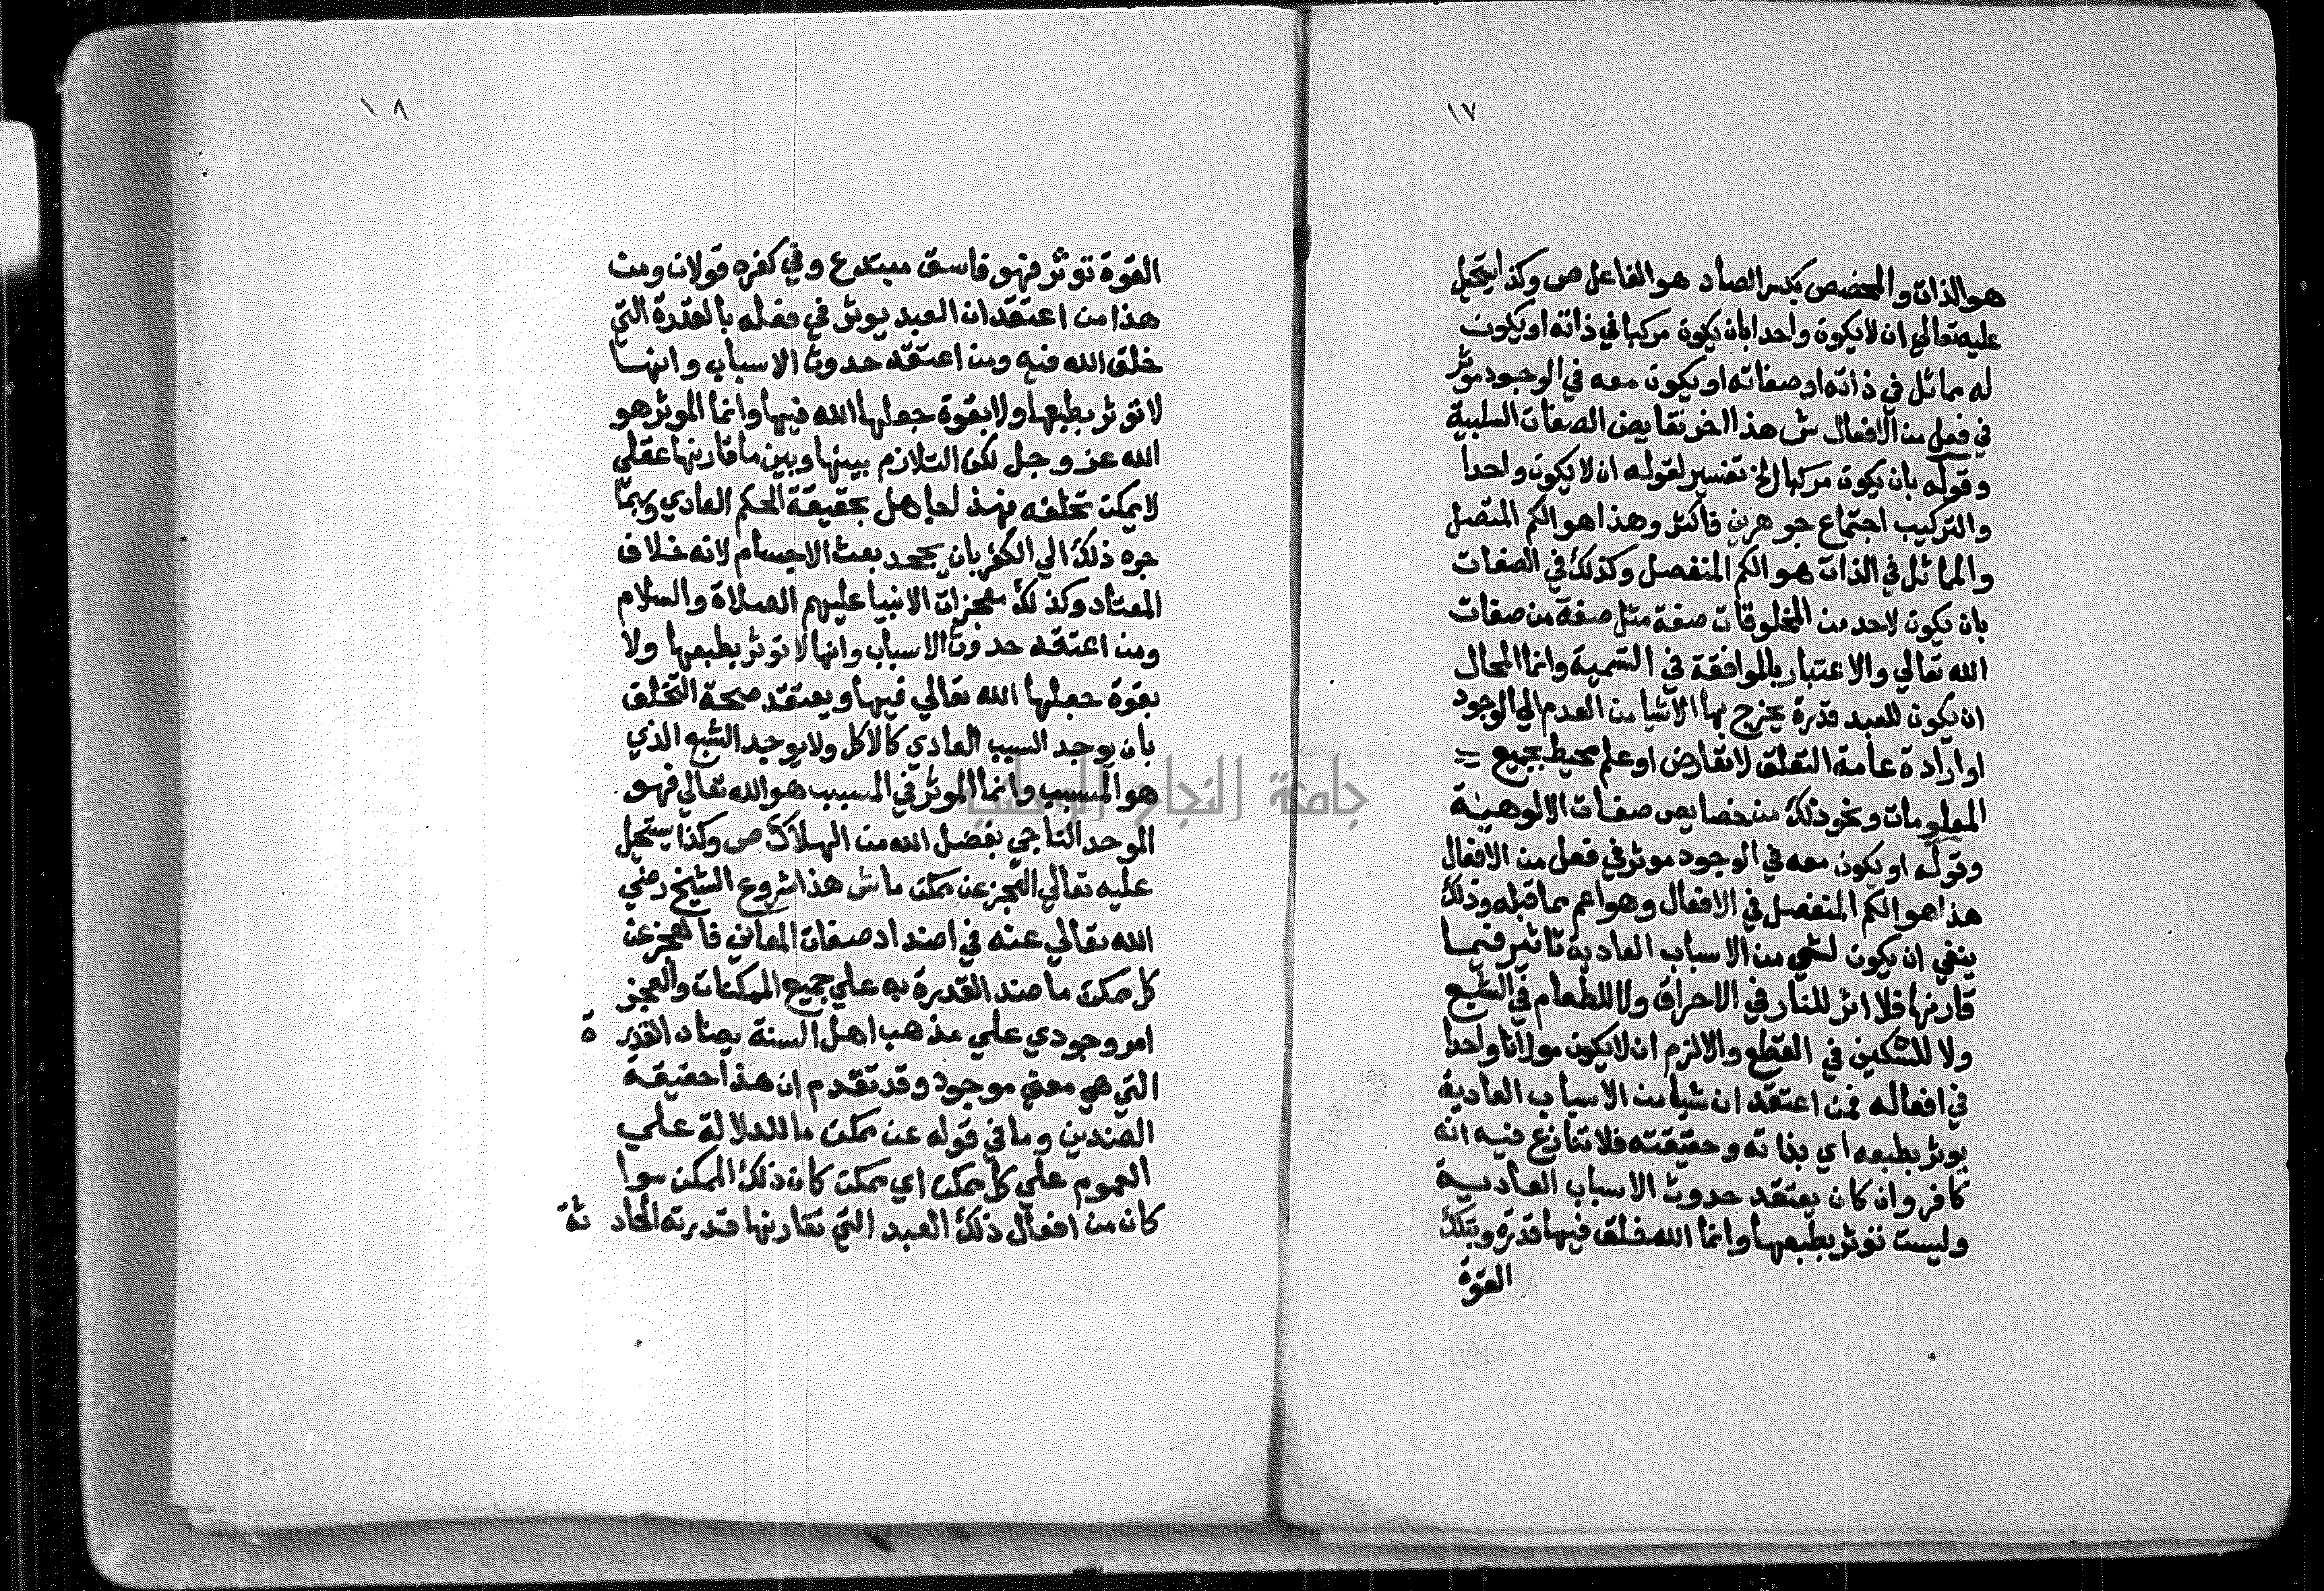 ١٧
هو الذات والمخصص بكسر الصاد هو الفاعل ص وكذا يستحيل
عليه تعالي ان لا يكون واحدا بان يكون مركبا في ذاته او يكون
له مماثل في ذاته او صفاته او يكون معه في الوجود موثر
في فعل من الافعال ش هذا اخر نقايض الصفات السلبية
وقوله بان يكون مركبا الخ تفسير لقوله ان لا يكون واحدا
والتركيب اجتماع جوهرين فاكثر وهذا هو الكم المتصل
والمماثل في الذات هو الكم المنفصل وكذلك في الصفات
بان يكون لاحد من المخلوقات صفة مثل صفة من صفات
الله تعالي والاعتبار بالموافقة في التسمية وانما المحال
ان يكون للعبد قدرة يخرج بها الاشيا من العدم الي الوجود
او ارادة عامة التعلق لا تعارض او علم محيط بجميع
المعلومات ونحو ذلك من خصايص صفات الالوهية
وقوله او يكون معه في الوجود موثر في فعل من الافعال
هذا هو الكم المنفصل في الافعال وهو اعم مما قبله وذلك
ينفي ان يكون لشي من الاسباب العادية تاثير فيما
قارنها فلا اثر للنار في الاحراق ولا للطعام في الشبع
ولا للسكين في القطع والا لزم ان لا يكون مولانا واحدا
في افعاله فمن اعتقد ان شيا من الاسباب العادية
يوثر بطبعه اي بذاته وحقيقته فلا تنازع فيه انه
كافر وان كان يعتقد حدوث الاسباب العادية
وليست توثر بطبعها وانما الله خلق فيها قدرة وبتلك
القوة
١٨
القوة توثر فهو فاسق مبتدع وفي كفره قولان ومن
هذا من اعتقد ان العبد يوثر في فعله بالقدرة التي
خلق الله فيه ومن اعتقد حدوث الاسباب وانها
لا توثر بطبعها ولا بقوة جعلها الله فيها وانما الموثر هو
الله عز وجل لكن التلازم بينها وبين ما قارنها عقلي
لا يمكن تخلفه فهذ لجاهل بحقيقة الحكم العادي وربما
جره ذلك الي الكفر بان يجحد بعث الاجسام لانه خلاف
المعتاد وكذلك معجزات الانبيا عليهم الصلاة والسلام
ومن اعتقد حدوث الاسباب وانها لا توثر بطبعها ولا
بقوة جعلها الله تعالي فيها ويعتقد صحة التخلف
بان يوجد السبب العادي كالاكل ولا يوجد الشبع الذي
هو المسبب وانما الموثر في المسبب هو الله تعالي فهو
الموحد الناجي بفضل الله من الهلاك ص وكذا يستحيل
عليه تعالي العجز عن ممكن ما ش هذا شروع الشيخ رضي
الله تعالي عنه في اضداد صفات المعاني فالعجز عن
كل ممكن ما ضد القدرة به علي جميع الممكنات والعجز
امر وجودي علي مذهب اهل السنة يضاد القدرة
التي هي معني موجود وقد تقدم ان هذا حقيقة
الضدين وما في قوله عن ممكن ما للدلالة علي
العموم علي كل ممكن اي ممكن كان ذلك الممكن سوا
كان من افعال ذلك العبد التي تقارنها قدرته الحادثة
جامعة النجاح الوطنية